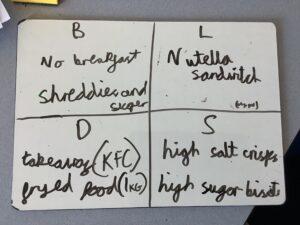 B
No breakfast
shreddies and
suger
L
Nutella
sandwitch
D
takeaway (KFC)
fryed food (1KG)
S
high salt crisps
high sugar biscits